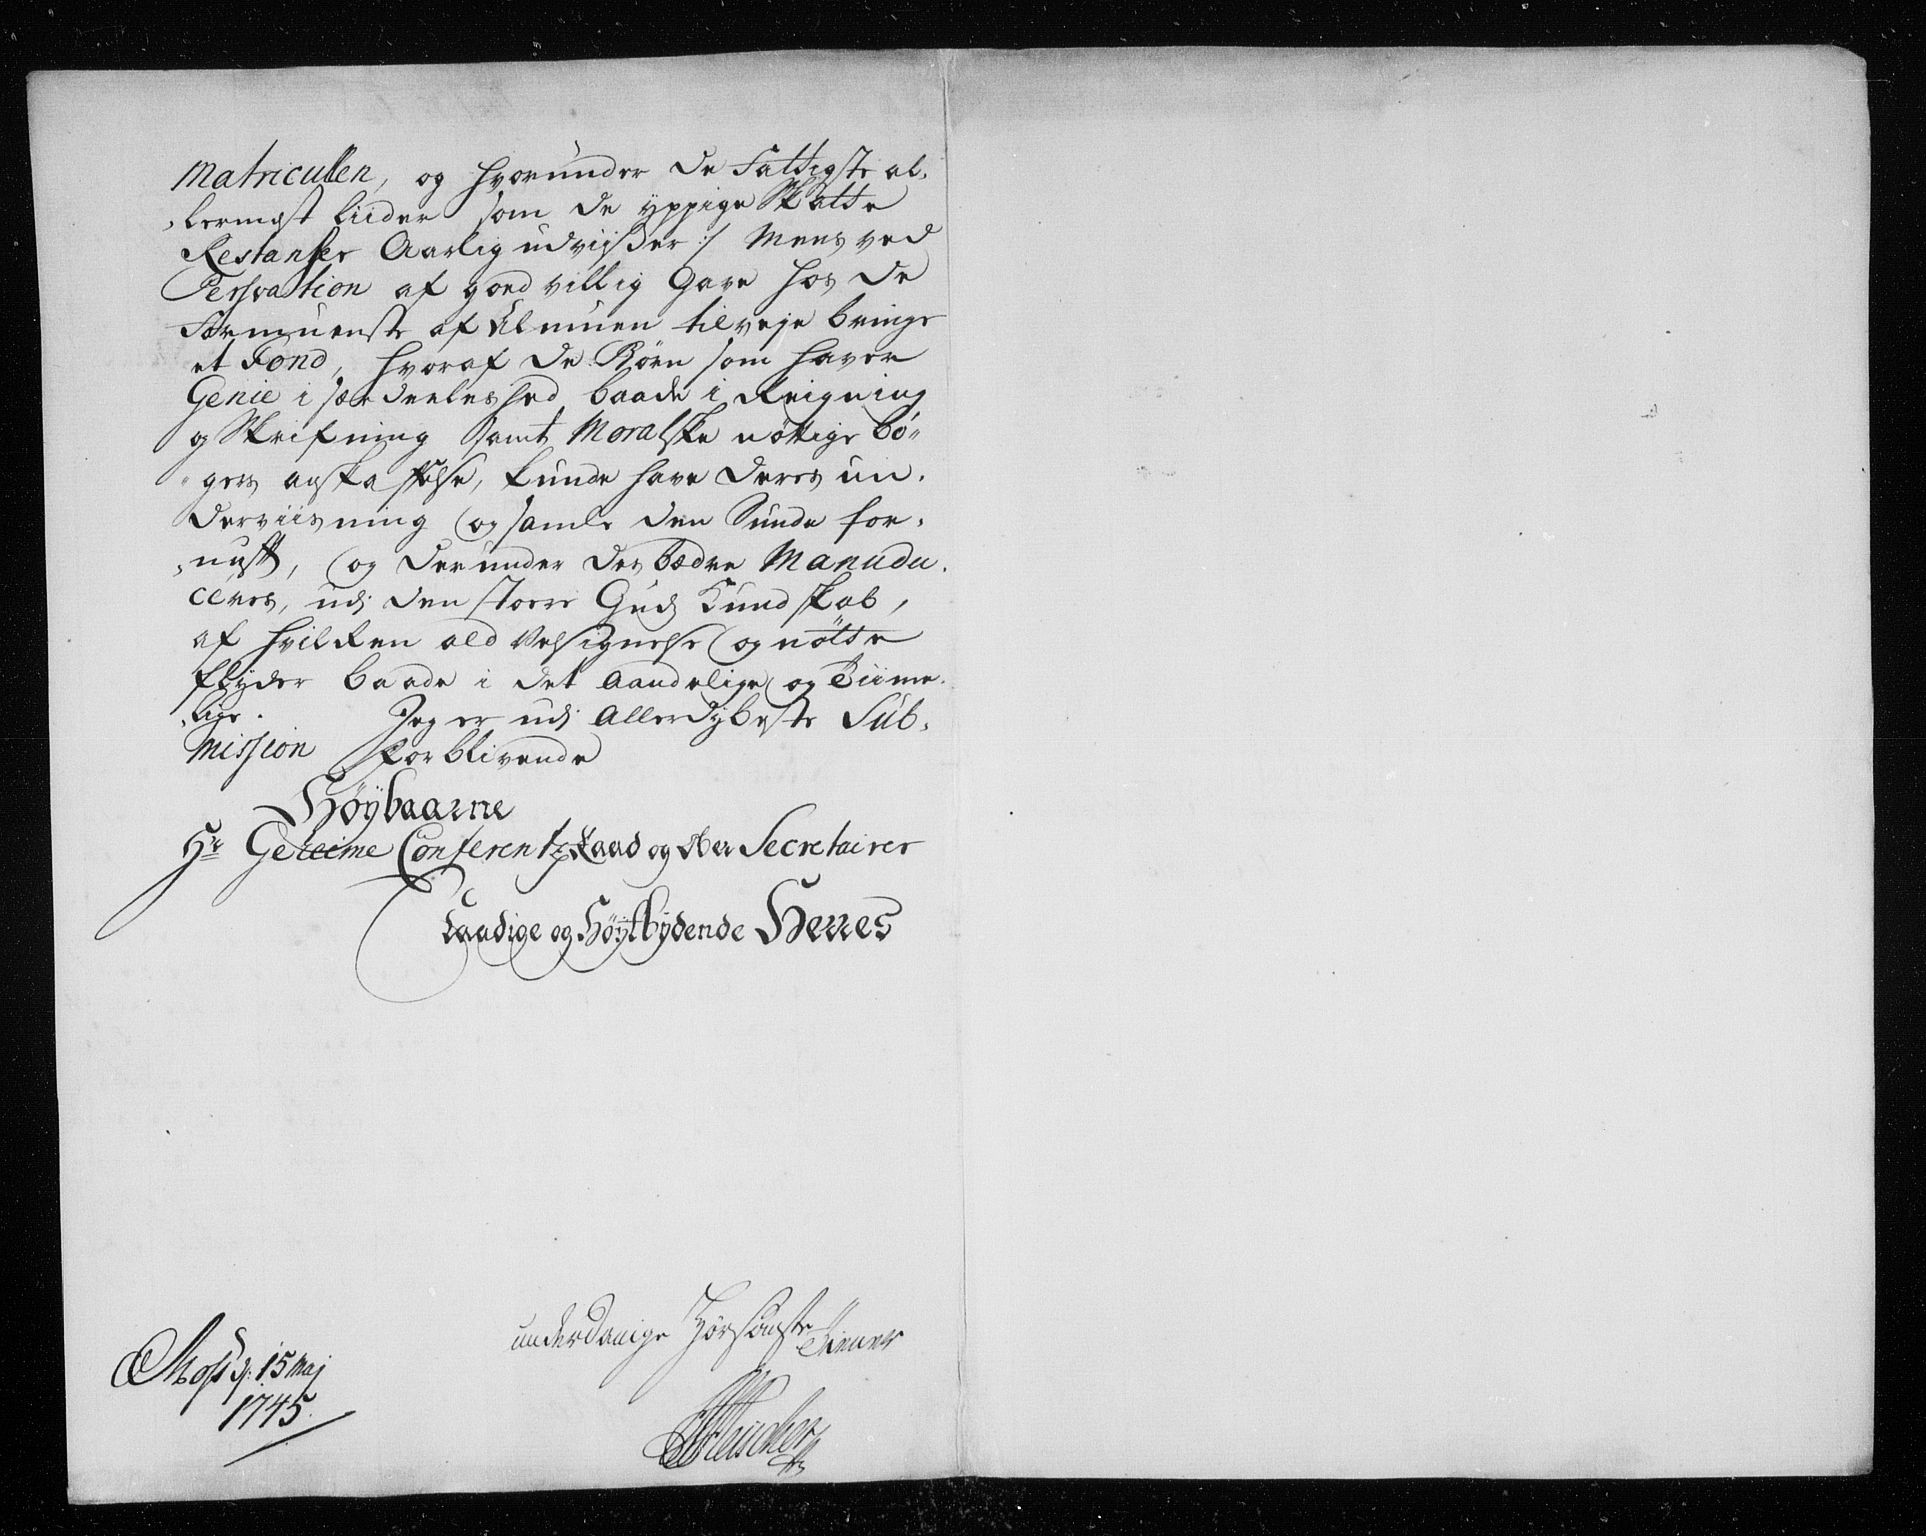 Matricullen, og hvorunder de Fattigste al,
,lermest liider som de yppige Skatte
Restanser Aarlig udviiser :/ Mens ved
Persvation af goed villig Gave hos de
Formuenste af Almuen tilveje bringe
et Fond, hvoraf de Børn som haver
Genie i særdeeleshed baade i Reigning
og Skrifning samt Moralske nøttige bø„
„gers anskaffelse, kunde have deres un,
derviisning og samle den Sunde for,
,nuft, og derunder des bædre Manudu,
ceres, udj den stoere Guds Kundskab,
af hvilken ald Velsignelse og nøtte
flyder baade i det Aandelige og Tiime,
,lige. Jeg er udj Allerdybeste Sub,
Mission forblivende
Høÿbaarne
Hr Geheime Conferentz Raad og Ober Secretairer
Naadige og Høÿtbÿdende Herres
underdanige Hørsomste Tiener
Moss d: 15 Maj
1745.